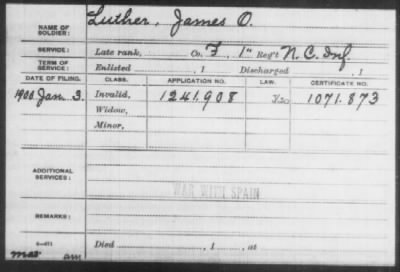 NAME OF SOLDIER: Luther, James O.
SERVICE: Late rank, Co. F, 1" Reg't N.C. Inf
TERM OF SERVICE: Enlisted , 1 Discharged , 1
DATE OF FILING. CLASS. APPLICATION NO. LAW. CERTIFICATE NO.
1900 Jan. 3. Invalid, 1241.908 1071.873
Widow,
Minor,
ADDITIONAL SERVICES:
WAR WITH SPAIN
REMARKS:
Died , 1 , at